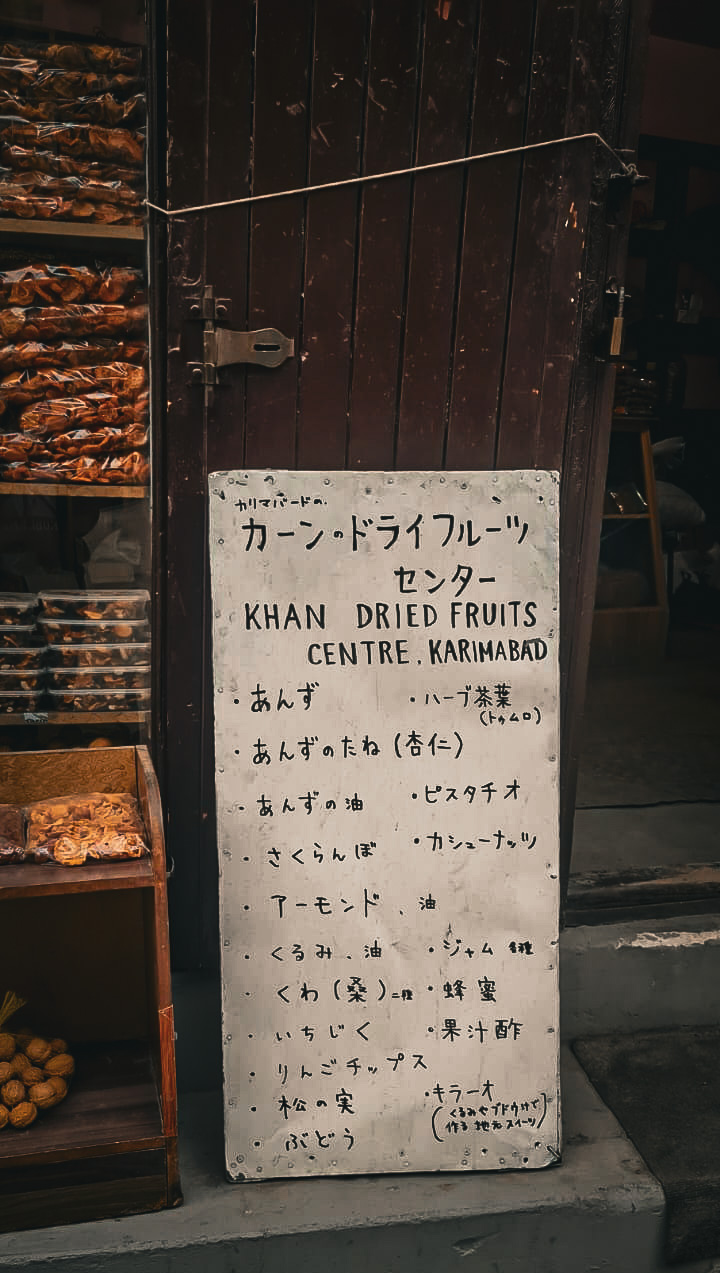 カリマバードの
カーンのドライフルーツ
センター
KHAN DRIED FRUITS
CENTRE, KARIMABAD
・あんず
・ハーブ茶葉
(トゥムロ)
・あんずのたね(杏仁)
・あんずの油
・ピスタチオ
・さくらんぼ
・カシューナッツ
・アーモンド、油
・くるみ、油
・ジャム 各種
・くわ(桑)二種
・蜂蜜
・いちじく
・果汁酢
・りんごチップス
・松の実
・キラーオ
(くるみやブドウ汁で
作る 地元スイーツ)
・ぶどう